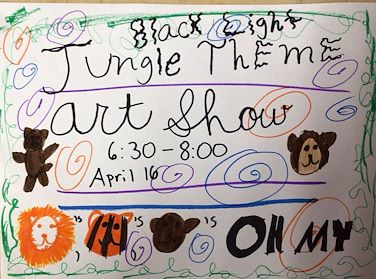 Black Light
Jungle Theme
art Show
6:30 - 8:00
April 16
's , 's , 's OH MY